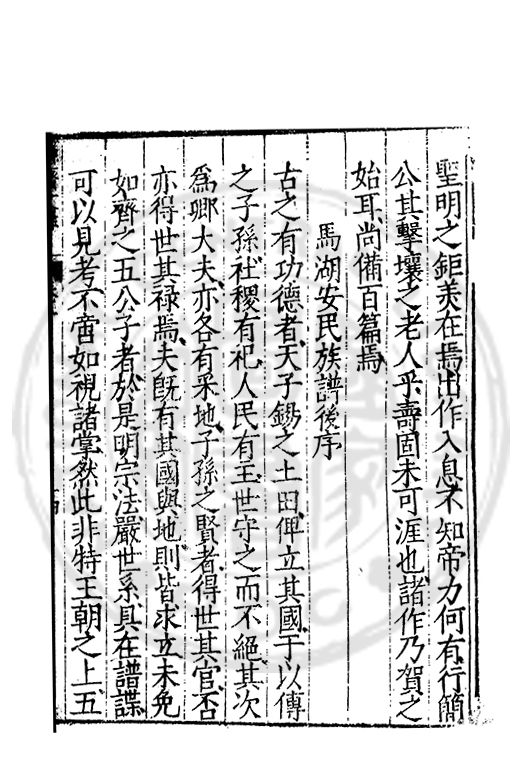 聖明之鉅美在焉出作入息不知帝力何有行簡
公其擊壤之老人乎壽固未可涯也諸作乃賀之
始耳尚備百篇焉
馬湖安民族譜後序
古之有功德者天子錫之土田俾立其國于以傳
之子孫社稷有祀人民有主世守之而不絕其次
爲卿大夫亦各有采地子孫之賢者得世其官否
亦得世其禄焉夫旣有其國與地則皆求立未免
如齊之五公子者於是明宗法嚴世系具在譜諜
可以見考不啻如視諸掌然此非特王朝之上五